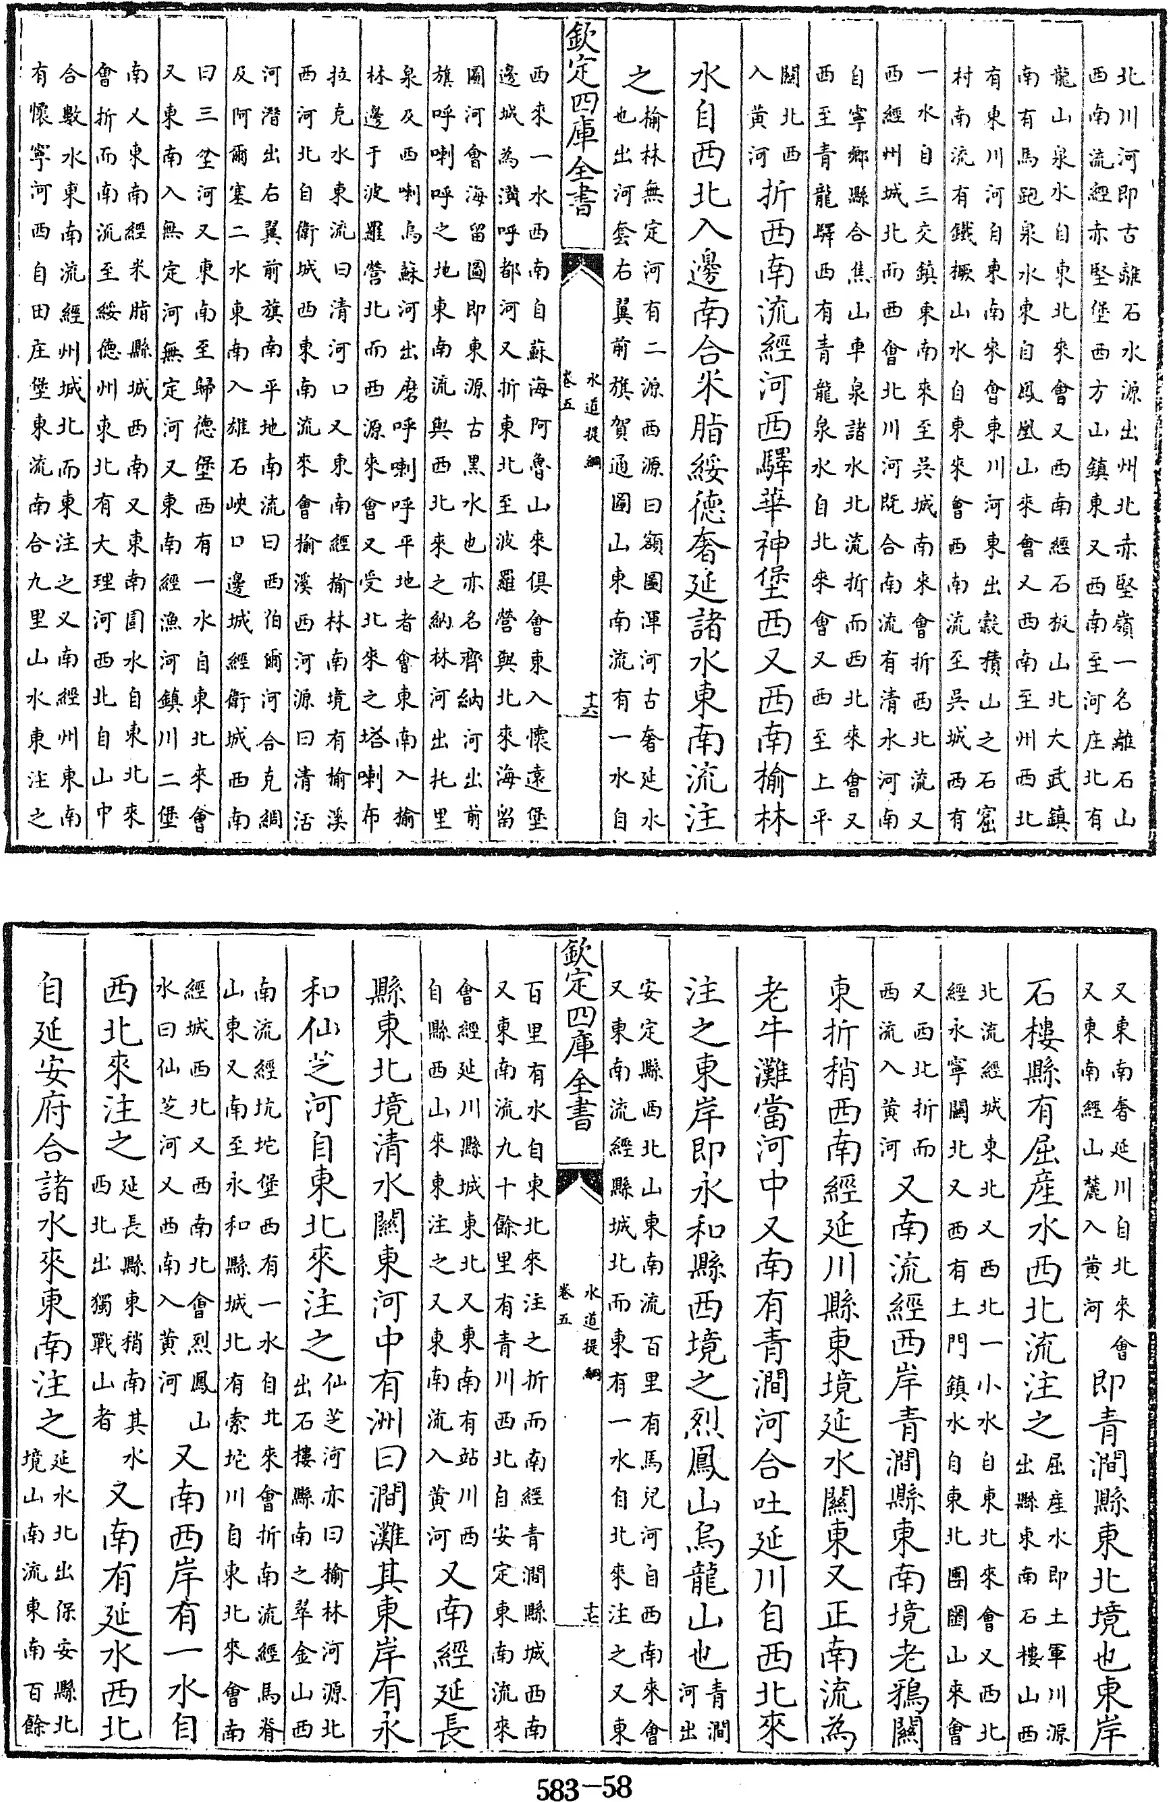 北川河即古離石水源出州北赤堅嶺一名離石山
西南流經赤堅堡西方山鎮東又西南至河庄北有
龍山泉水自東北來會又西南經石板山北大武鎮
南有馬跑泉水東自鳳凰山來會又西南至州西北
有東川河自東南來會東川河東出穀積山之石窟
村南流有鐵橛山水自東來會西南流至吳城西有
一水自三交鎮東南來至吳城南來會折西北流又
西經州城北而西會北川河既合南流有清水河南
自寧鄉縣合焦山車泉諸水北流折而西北來會又
西至青龍驛西有青龍泉水自北來會又西至上平
關北西
入黃河
折西南流經河西驛華神堡西又西南榆林
水自西北入邊南合米脂綏德奢延諸水東南流注
之
榆林無定河有二源西源曰額圖渾河古奢延水
也出河套右翼前旗賀通圖山東南流有一水自
欽定四庫全書
水道提綱
卷五
十六
西來一水西南自蘇海阿魯山來俱會東入懷遠堡
邊城為灒呼都河又折東北至波羅營與北來海留
圖河會海留圖即東源古黑水也亦名齊納河出前
旗呼喇呼之地東南流與西北來之納林河出托里
泉及西喇烏蘇河出磨呼喇呼平地者會東南入榆
林邊于波羅營北而西源來會又受北來之塔喇布
拉克水東流曰清河口又東南經榆林南境有榆溪
西河北自衛城西東南流來會榆溪西河源曰清活
河潛出右翼前旗南平地南流曰西伯爾河合克綢
及阿爾塞二水東南入雄石峽口邊城經衛城西南
曰三坌河又東南至歸德堡西有一水自東北來會
又東南入無定河無定河又東南經漁河鎮川二堡
南又東南經米脂縣城西南又東南圁水自東北來
會折而南流至綏德州東北有大理河西北自山中
合數水東南流經州城北而東注之又南經州東南
有懷寧河西自田庄堡東流南合九里山水東注之
又東南奢延川自北來會
又東南經山麓入黃河
即青澗縣東北境也東岸
石樓縣有屈產水西北流注之
屈產水即土軍川源
出縣東南石樓山西
北流經城東北又西北一小水自東北來會又西北
經永寧關北又西有土門鎮水自東北團圝山來會
又西北折而
西流入黃河
又南流經西岸青澗縣東南境老鴉關
東折稍西南經延川縣東境延水關東又正南流為
老牛灘當河中又南有青澗河合吐延川自西北來
注之東岸即永和縣西境之烈鳳山烏龍山也
青澗
河出
安定縣西北山東南流百里有馬兒河自西南來會
又東南流經縣城北而東有一水自北來注之又東
欽定四庫全書
水道提綱
卷五
十七
百里有水自東北來注之折而南經青澗縣城西南
又東南流九十餘里有青川西北自安定東南流來
會經延川縣城東北又東南有站川西
自縣西山來東注之又東南流入黃河
又南經延長
縣東北境清水關東河中有洲曰澗灘其東岸有永
和仙芝河自東北來注之
仙芝河亦曰榆林河源北
出石樓縣南之翠金山西
南流經坑坨堡西有一水自北來會折南流經馬脊
山東又南至永和縣城北有索坨川自東北來會南
經城西北又西南北會烈鳳山
水曰仙芝河又西南入黃河
又南西岸有一水自
西北來注之
延長縣東稍南其水
西北出獨戰山者
又南有延水西北
自延安府合諸水來東南注之
延水北出保安縣北
境山南流東南百餘
583-58